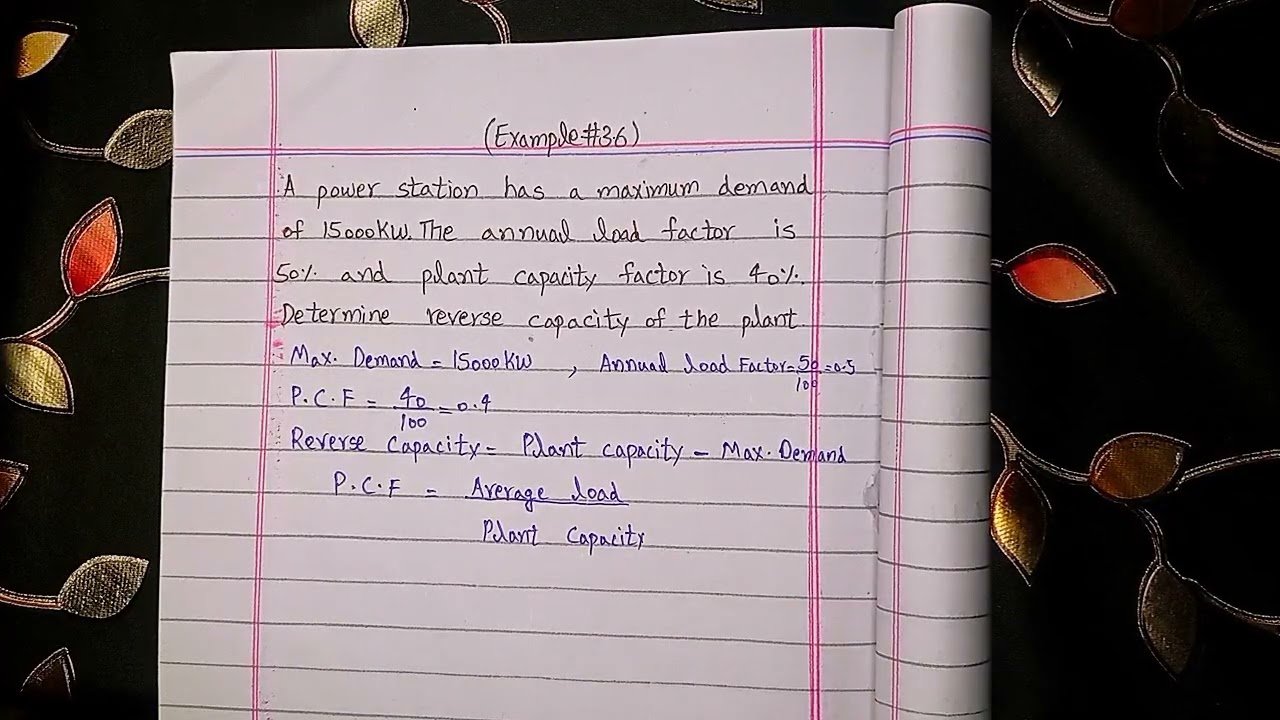 (Example#3.6)
A power station has a maximum demand
of 15000KW. The annual load factor is
50% and plant capacity factor is 40%.
Determine reverse capacity of the plant.
Max. Demand = 15000KW , Annual load Factor = 50/100 = 0.5
P.C.F = 40/100 = 0.4
Reverse Capacity = Plant capacity - Max. Demand
P.C.F = Average load
Plant Capacity